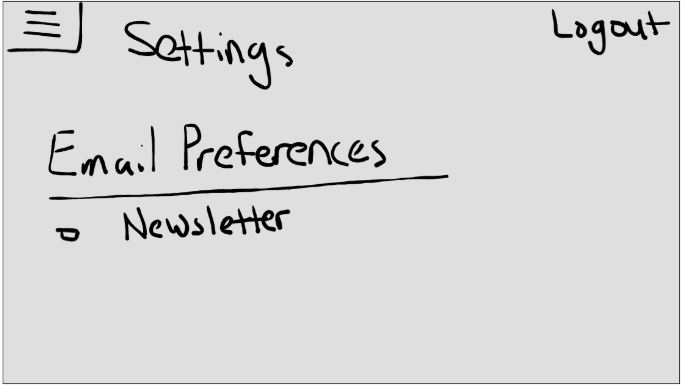 Settings
Logout
Email Preferences
Newsletter